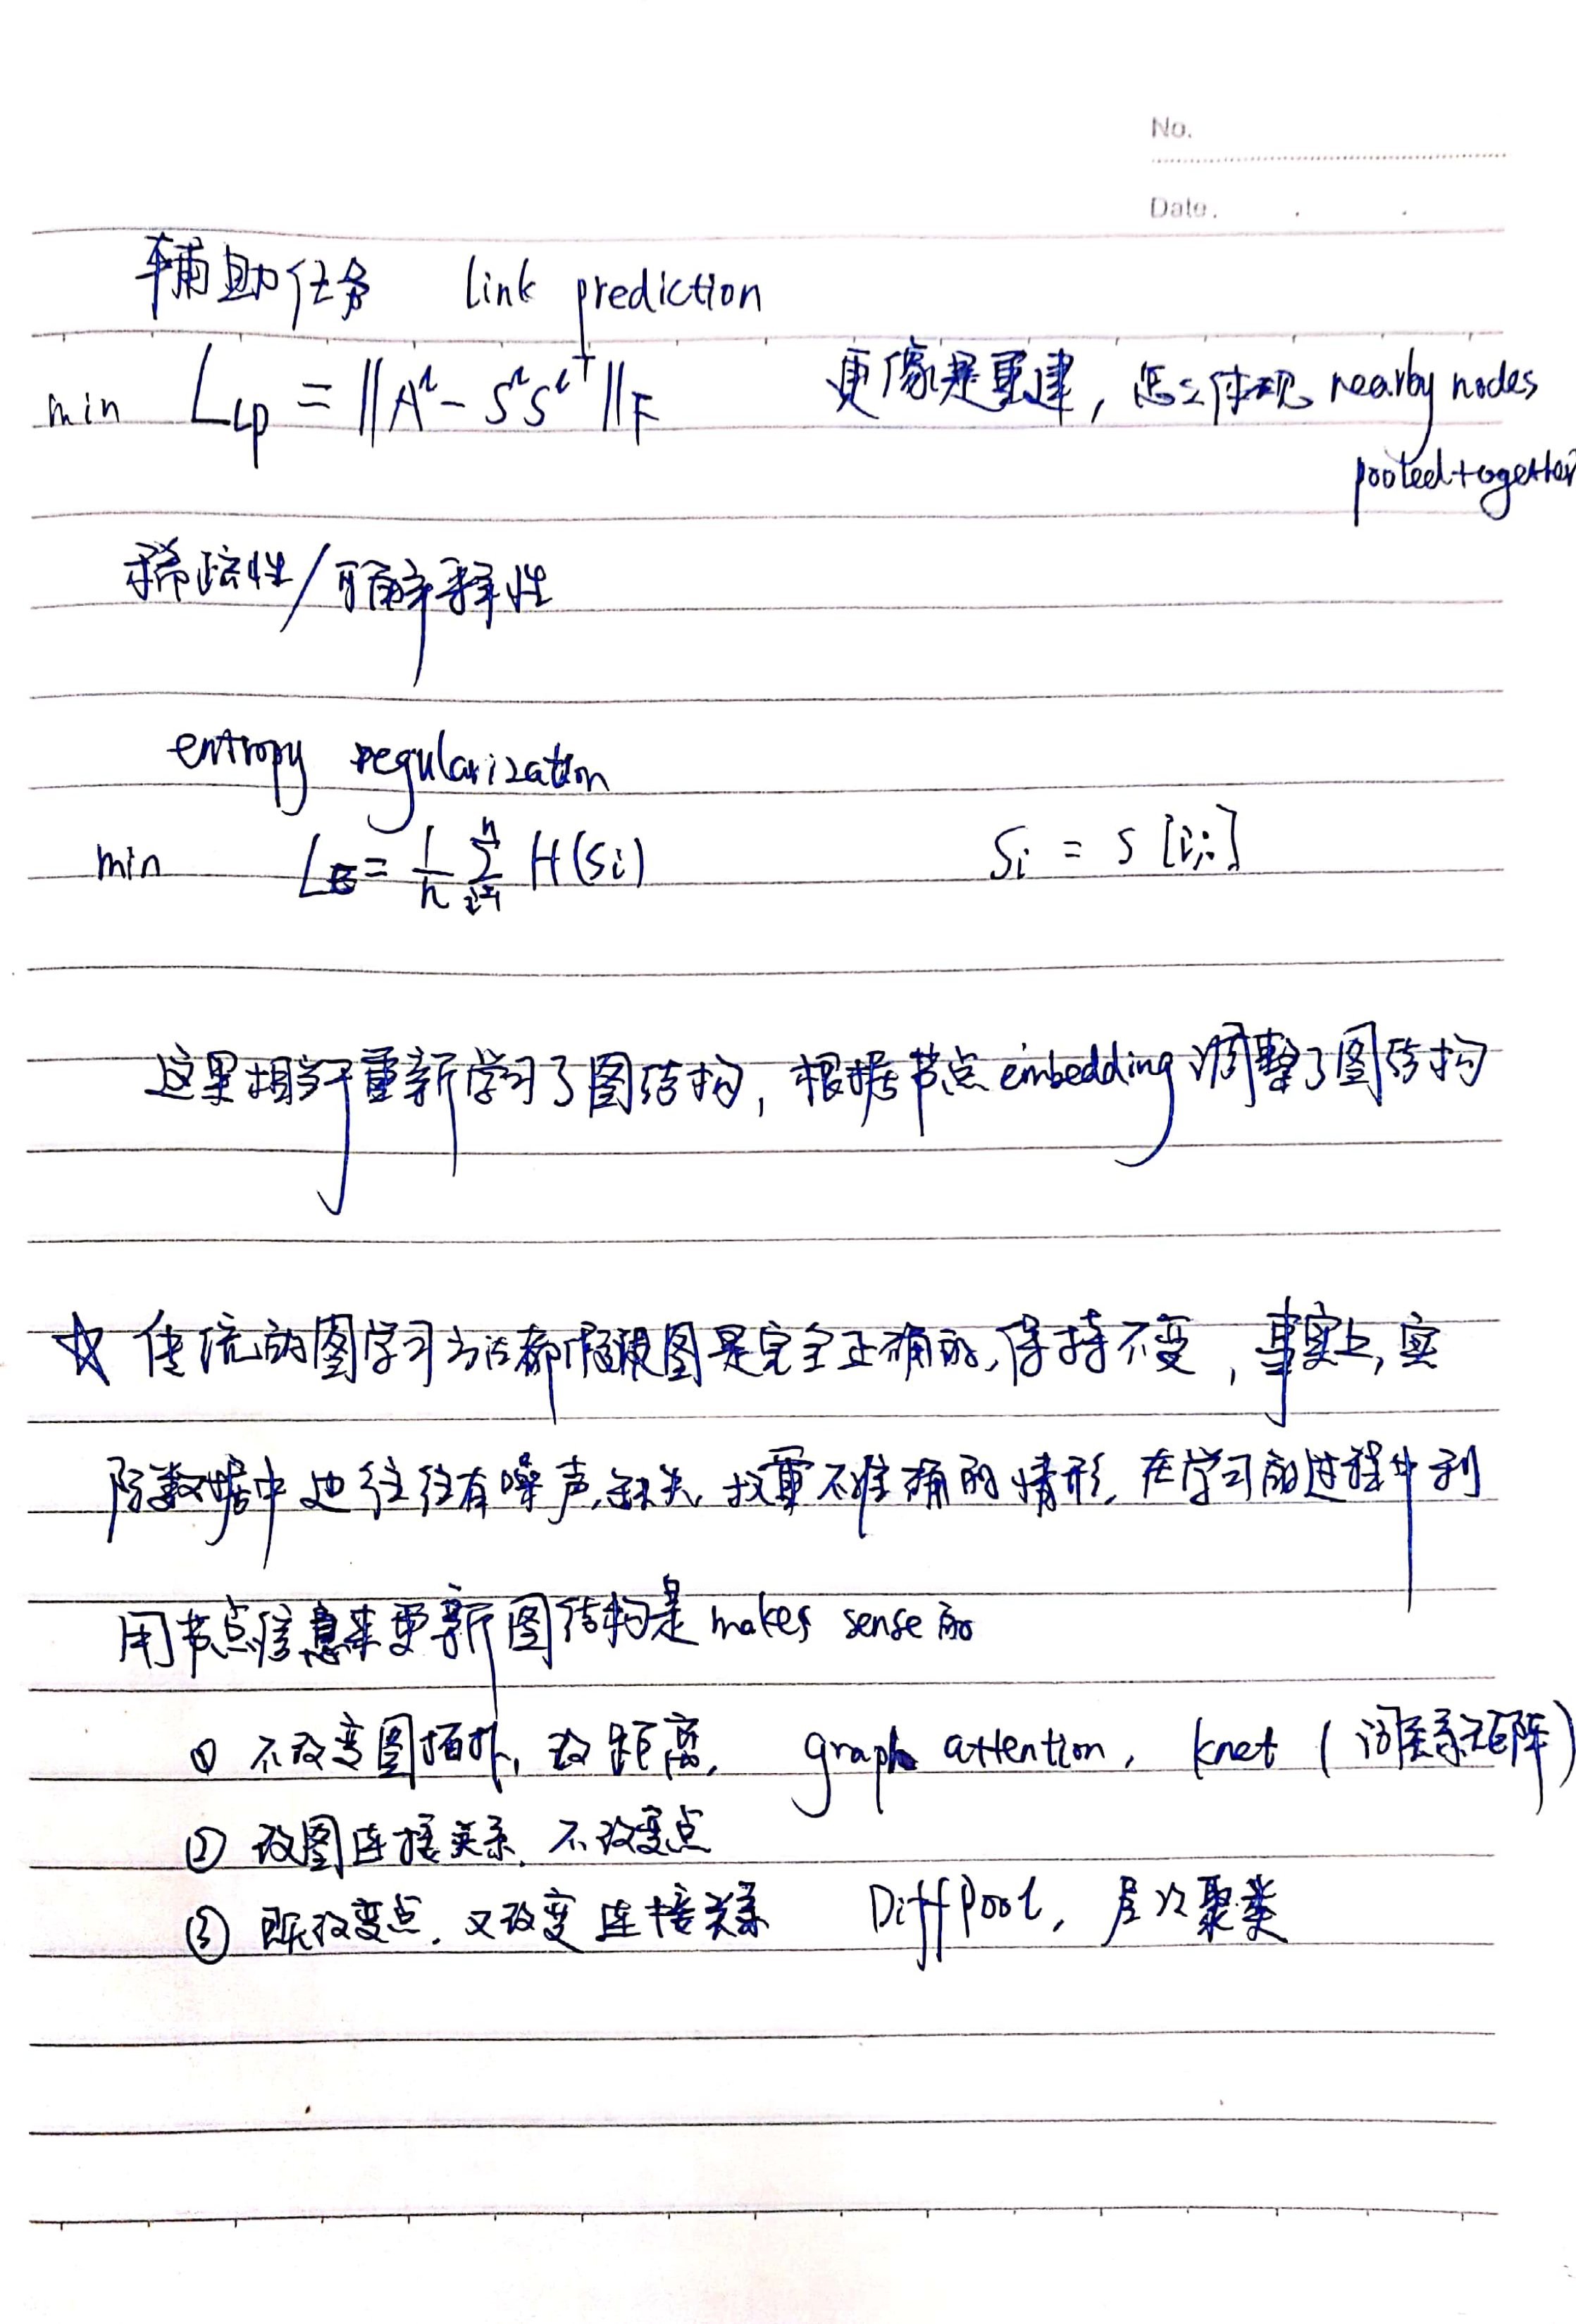 No.
Date.
辅助任务 link prediction
min L_LP = ||A^l - S^l S^l^T||_F 更像是重建，怎么体现 nearby nodes
pooled together
稀疏性/可解释性
entropy regularization
min L_E = 1/n ∑_{i=1}^n H(Si) Si = S [i,:]
这里相当于重新学习了图结构，根据节点embedding调整了图结构
☆ 传统的图学习方法都假设图是完全正确的，保持不变，事实上，实
际数据中边往往有噪声、缺失、权重不准确的情形，在学习的过程中利
用节点信息来更新图结构是 makes sense 的
① 不改变图拓扑，改距离， graph attention, knet (词关系矩阵)
② 改图连接关系，不改变点
③ 既改变点，又改变连接关系 DiffPool, 层次聚类